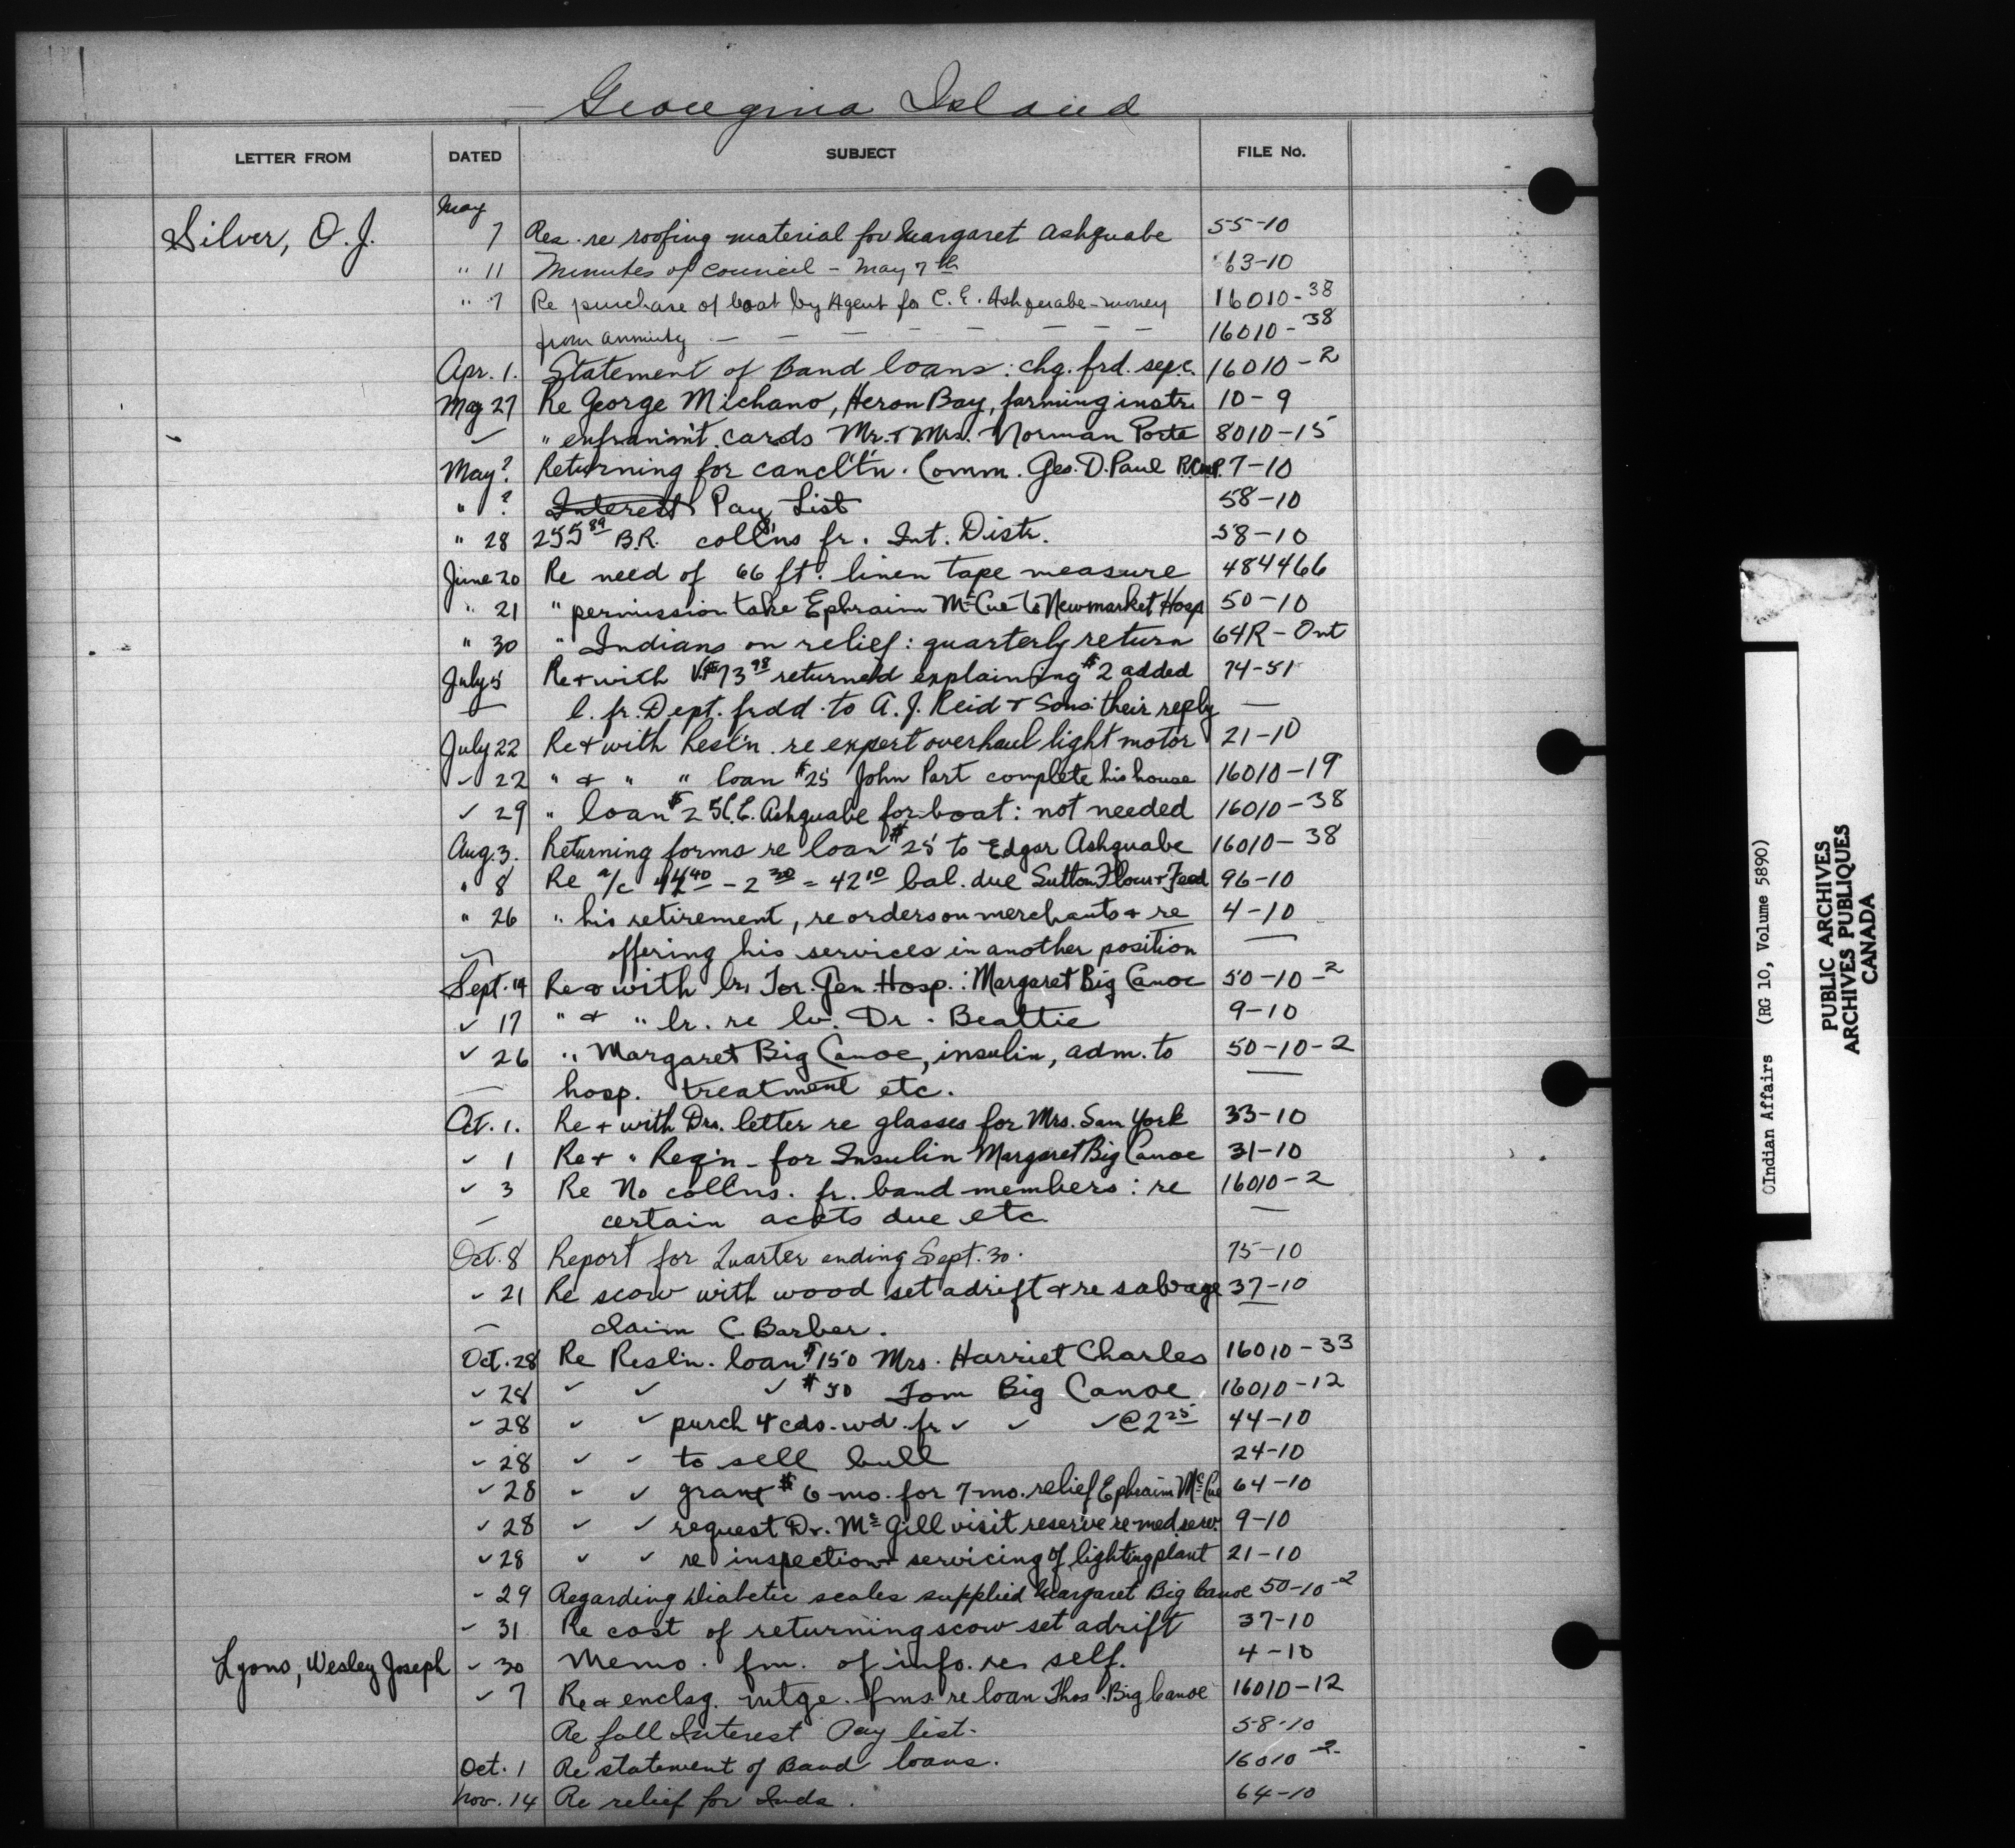 Georgina Island
LETTER FROM DATED SUBJECT FILE No.
May
Silver, O. J. 7 Res. re roofing material for Margaret Ashquabe 55-10
" 11 Minutes of council - May 7th 63-10
" 7 Re purchase of boat by Agent for C. E. Ashquabe - money 16010-38
from annuity — — — — — — — — 16010-38
Apr. 1. Statement of Band loans: chg. frd. sep. c. 16010-2
May 27 Re George Michano, Heron Bay, farming instr. 10-9
✓ " enfran'm't. cards Mr. & Mrs. Norman Porte 8010-15
May ? Returning for cancl't'n. Comm. Geo. D. Paul R.C.M.P. 7-10
" ? Interest Pay List 58-10
" 28 255 89 B.R. coll'ns fr. Int. Distr. 58-10
June 20 Re need of 66 ft. linen tape measure 484466
" 21 " permission take Ephraim McCue to Newmarket Hosp 50-10
" 30 " Indians on relief: quarterly return 64R-Ont
July 5 Re & with V. $73 98 returned explaining $2 added 74-51
— l. fr. Dept. frdd. to A. J. Reid & Sons: their reply —
July 22 Re & with Resl'n. re expert overhaul light motor 21-10
✓ 22 " & " " loan $25 John Part complete his house 16010-19
✓ 29 " loan $25 C. E. Ashquabe for boat: not needed 16010-38
Aug. 3. Returning forms re loan $25 to Edgar Ashquabe 16010-38
" 8 Re a/c 44 40 - 2 30 = 42 10 bal. due Sutton Flour & Feed 96-10
" 26 " his retirement, re orders on merchants & re 4-10
— offering his services in another position —
Sept. 14 Re & with lr. Tor. Gen. Hosp.: Margaret Big Canoe 50-10-2
✓ 17 " & " lr. re lv. Dr. Beattie 9-10
✓ 26 " Margaret Big Canoe, insulin, adm. to 50-10-2
— hosp. treatment etc. —
Oct. 1. Re & with Drs. letter re glasses for Mrs. Sam York 33-10
✓ 1 Re & " Reqn. for Insulin Margaret Big Canoe 31-10
✓ 3 Re No collns. fr. band members: re 16010-2
— certain accts due etc. —
Oct. 8 Report for Quarter ending Sept. 30. 75-10
✓ 21 Re scow with wood set adrift & re salvage 37-10
— claim C. Barber.
Oct. 28 Re Resl'n. loan $150 Mrs. Harriet Charles 16010-33
✓ 28 ✓ ✓ ✓ $50 Tom Big Canoe 16010-12
✓ 28 ✓ ✓ purch 4 cds. wd. fr ✓ ✓ ✓ @ 2 25 44-10
✓ 28 ✓ ✓ to sell bull 24-10
✓ 28 ✓ ✓ grant $6 mo. for 7 mo. relief Ephraim McCue 64-10
✓ 28 ✓ ✓ request Dr. McGill visit reserve re med. serv. 9-10
✓ 28 ✓ ✓ re inspection & servicing of lighting plant 21-10
✓ 29 Regarding Diabetic scales supplied Margaret Big Canoe 50-10-2
✓ 31 Re cost of returning scow set adrift 37-10
Lyons, Wesley Joseph ✓ 30 Memo. fm. of info. re self. 4-10
✓ 7 Re & enclsg. mtge. fms. re loan Thos. Big Canoe 16010-12
Re fall Interest Pay list. 58-10
Oct. 1 Re statement of Band loans. 16010-2
Nov. 14 Re relief for Inds. 64-10
Indian Affairs (RG 10, Volume 5890)
PUBLIC ARCHIVES
ARCHIVES PUBLIQUES
CANADA